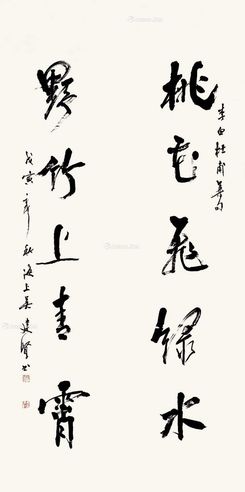 李白杜甫集句
桃花飞绿水
野竹上青霄
戊寅年秋海上吴建贤书